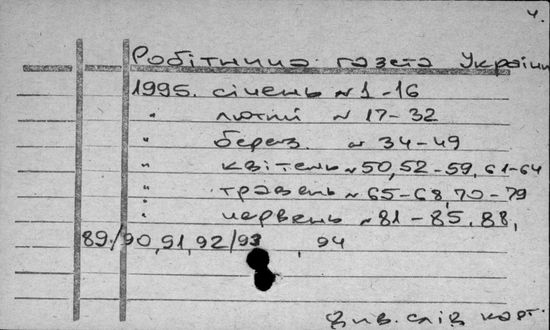 4.
Робітнича газета України
1995. січень №1-16
" лютий №17-32
" берез. №34-49
" квітень №50,52-59,61-64
" травень №65-68,70-79
" червень №81-85.88,
89./90,91,92/93, 94
див. слід карт.